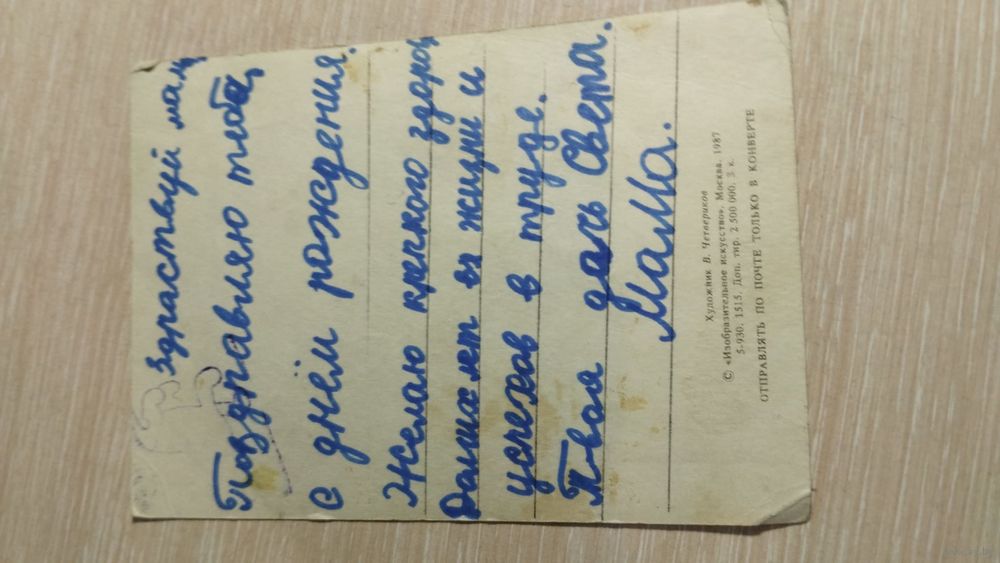 Здраствуй мам
Поздравляю тебя
с днём рождения.
Желаю крепкого здоров
Долгих лет жизни и
успехов в труде.
Твоя дочь Света.
Мама.
Художник В. Четвериков
© «Изобразительное искусство», Москва. 1987
5-930. 1515. Доп. тир. 2 500 000. 3 к.
ОТПРАВЛЯТЬ ПО ПОЧТЕ ТОЛЬКО В КОНВЕРТЕ